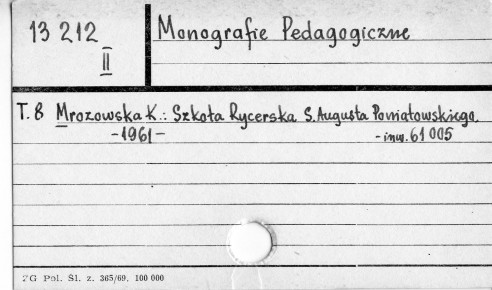 13 212
II
Monografie Pedagogiczne
T. 8 Mrozowska K.: Szkoła Rycerska S. Augusta Poniatowskiego.
-1961- -inw. 61 005
ZG Pol. Śl. z. 365/69. 100 000